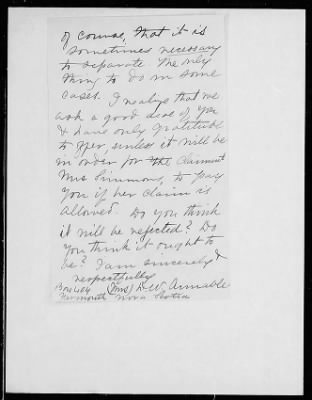 of course, that it is
sometimes necessary
to separate the only
thing to do in some
cases. I realize that we
ask a good deal of you
& have only gratitude
to offer, unless it will be
in order for the Claimant
Mrs Simmons, to pay
you if her claim is
allowed. Do you think
it will be rejected? Do
you think it ought to
be? I am sincerely &
respectfully
Box 404 (Mrs) D. W. Annable
Yarmouth Nova Scotia